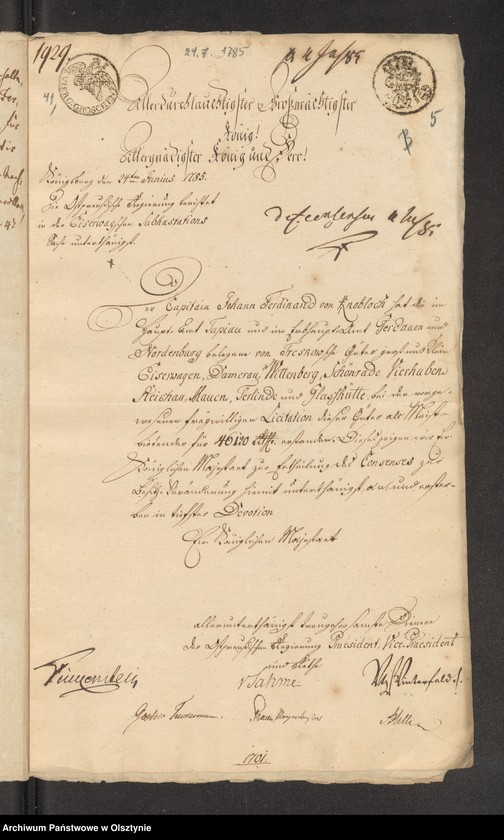 1929.
24.7.1785
41,
5
B
Allerdurchlauchtigster Großmächtigster
König!
Allergnädigster König und Herr!
Königsberg den 24ten Junius 1785.
Die Ostpreußische Regierung berichtet
in der Eiserwagschen Subhastations
Sache unterthänigst.
Der Capitain Johann Ferdinand von Knobloch hat die im
Haupt Amt Tapiau und im Erbhaupt Amt Gerdauen und
Nordenburg belegene von Treskowsche Güter groß und Klein
Eiserwagen, Damerau, Wittenberg, Schönrade, Vierhuben
Reishan, Mauen, Terlinde und Glashütte, bei der vorge-
wesenen freiwilligen Licitation dieser Güter als Meist-
bietender für 46150 erstanden. Dieses zeigen wir Ew.
Königlichen Majestaet zur Ertheilung des Consenses zur
Besitz Veränderung hiemit unterthänigst an, und erster-
ben in tiefster Devotion
Ew. Königlichen Majestaet
allerunterthänigst treugehorsamste Diener
der Ostpreußischen Regierung Praesident Vice-Praesident
und Räthe
1701.
Archiwum Państwowe w Olsztynie